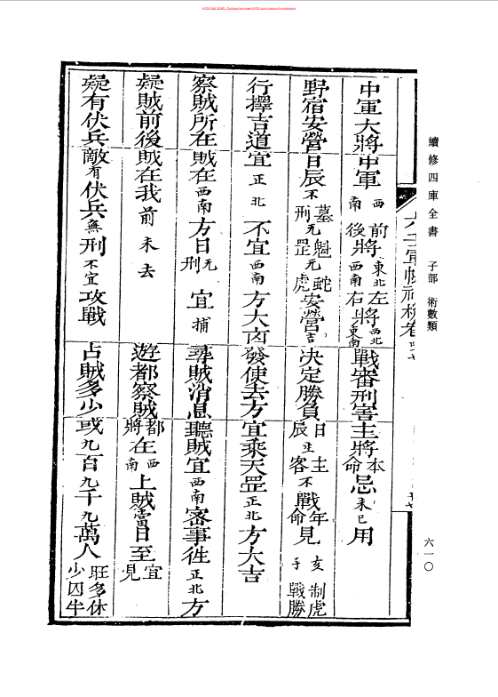 續修四庫全書 子部 術數類
六一〇
中軍大將中軍西南前將東北後將西南左將西北右將東南戰審刑害主將本命忌未巳用
野宿安營日辰不刑墓无罡魁无虎蛇安營吉決定勝負日辰主客主不戰年命見亥子制虎戰勝
行擇吉道宜正北不宜西南方大凶發使去方宜乘天罡正北方大吉
察賊所在賊在西南方日刑无宜捕尋賊消息聽賊宜西南審事徃正北方
疑賊前後賊在我前未去遊都察賊都將在西南上賊當日至宜見
疑有伏兵敵有伏兵無刑不宜攻戰占賊多少或九百九千九萬人旺多休少囚半